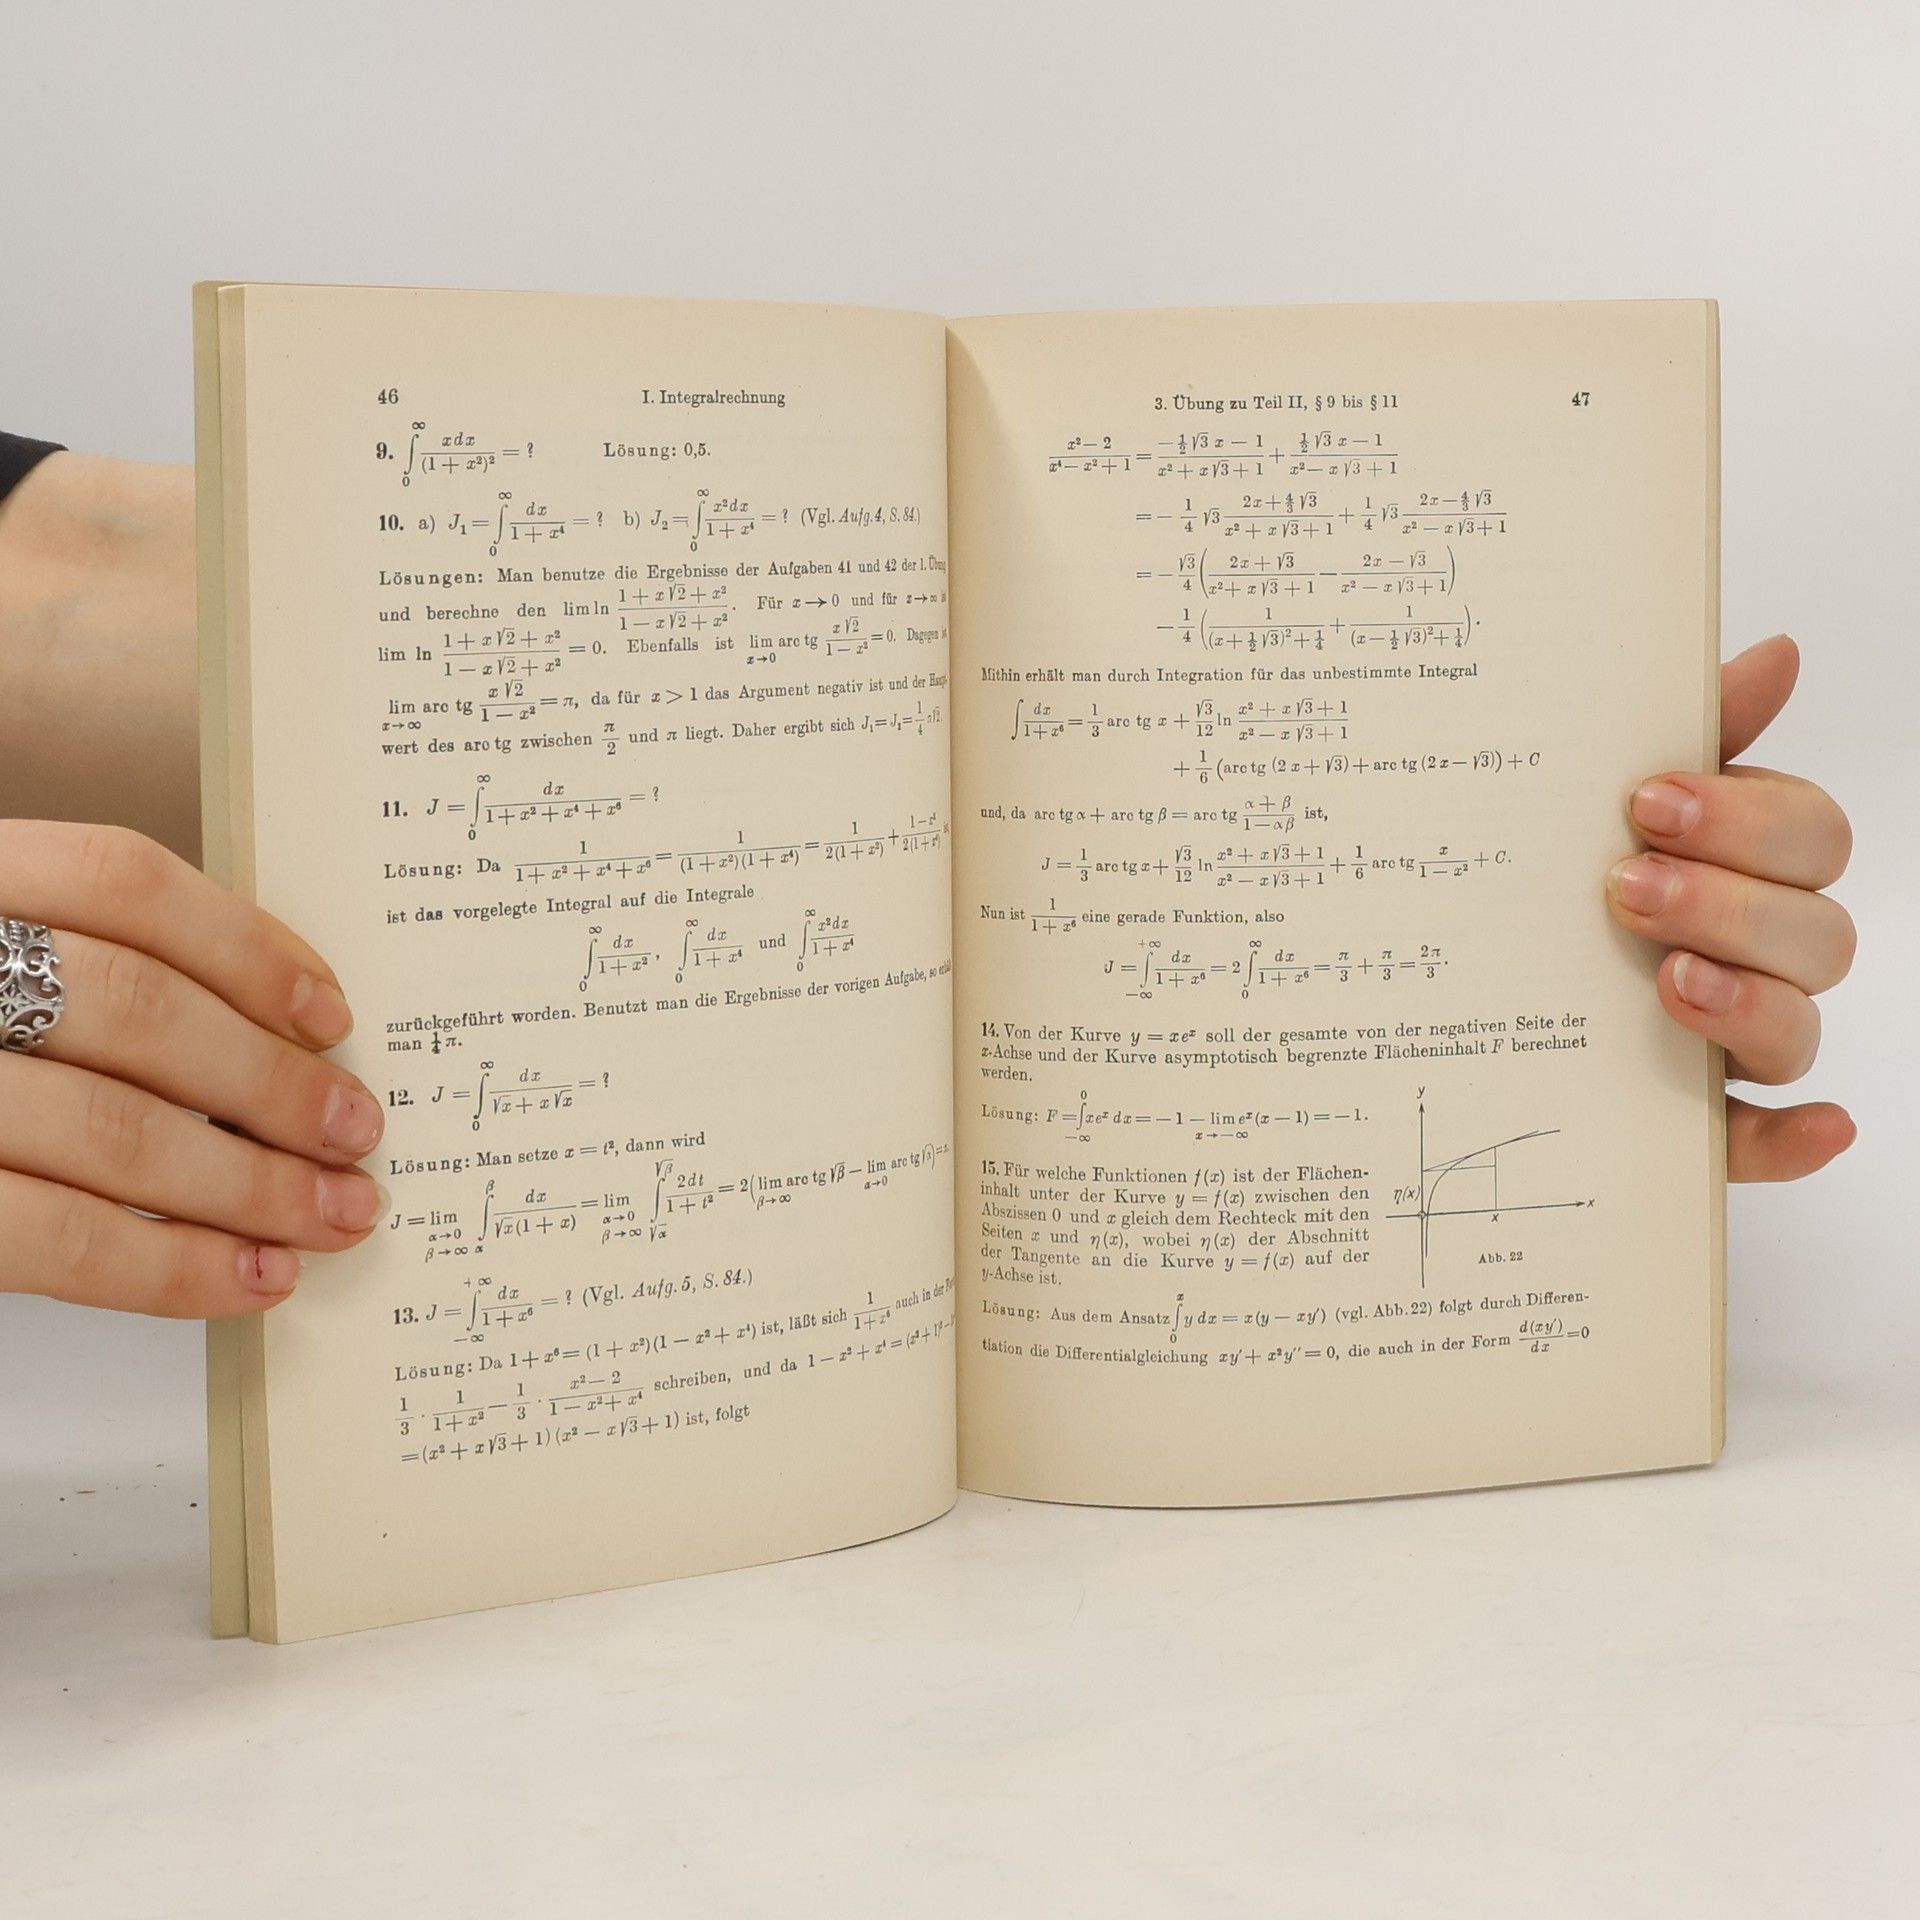 46 I. Integralrechnung
9. ∫₀^∞ xdx/(1 + x²)² = ? Lösung: 0,5.
10. a) J₁ = ∫₀^∞ dx/(1 + x⁴) = ? b) J₂ = ∫₀^∞ x²dx/(1 + x⁴) = ? (Vgl. Aufg. 4, S. 84.)
Lösungen: Man benutze die Ergebnisse der Aufgaben 41 und 42 der 1. Übung
und berechne den lim ln (1 + x√2 + x²)/(1 − x√2 + x²). Für x → 0 und für x → ∞ is
lim ln (1 + x√2 + x²)/(1 − x√2 + x²) = 0. Ebenfalls ist lim_{x→0} arc tg x√2/(1 − x²) = 0. Dagegen is
lim_{x→∞} arc tg x√2/(1 − x²) = π, da für x > 1 das Argument negativ ist und der Haup-
wert des arc tg zwischen π/2 und π liegt. Daher ergibt sich J₁ = J₂ = 1/4 π√2.
11. J = ∫₀^∞ dx/(1 + x² + x⁴ + x⁶) = ?
Lösung: Da 1/(1 + x² + x⁴ + x⁶) = 1/((1 + x²)(1 + x⁴)) = 1/(2(1 + x²)) + (1 − x²)/(2(1 + x⁴))
ist das vorgelegte Integral auf die Integrale
∫₀^∞ dx/(1 + x²), ∫₀^∞ dx/(1 + x⁴) und ∫₀^∞ x²dx/(1 + x⁴)
zurückgeführt worden. Benutzt man die Ergebnisse der vorigen Aufgabe, so
man 1/4 π.
12. J = ∫₀^∞ dx/(√x + x√x) = ?
Lösung: Man setze x = t², dann wird
J = lim_{α→0, β→∞} ∫_α^β dx/(√x(1 + x)) = lim_{α→0, β→∞} ∫_{√α}^{√β} 2dt/(1 + t²) = 2(lim_{β→∞} arc tg √β − lim_{α→0} arc tg √α) = π.
13. J = ∫_{−∞}^{+∞} dx/(1 + x⁶) = ? (Vgl. Aufg. 5, S. 84.)
Lösung: Da 1 + x⁶ = (1 + x²)(1 − x² + x⁴) ist, läßt sich 1/(1 + x⁶) auch in der
1/3 · 1/(1 + x²) − 1/3 · (x² − 2)/(1 − x² + x⁴) schreiben, und da 1 − x² + x⁴ = (x² + 1)² −
= (x² + x√3 + 1)(x² − x√3 + 1) ist, folgt
3. Übung zu Teil II, § 9 bis § 11 47
(x² − 2)/(x⁴ − x² + 1) = (−½√3 x − 1)/(x² + x√3 + 1) + (½√3 x − 1)/(x² − x√3 + 1)
= − 1/4 √3 (2x + 4/3 √3)/(x² + x√3 + 1) + 1/4 √3 (2x − 4/3 √3)/(x² − x√3 + 1)
= − √3/4 ((2x + √3)/(x² + x√3 + 1) − (2x − √3)/(x² − x√3 + 1))
− 1/4 (1/((x + ½√3)² + ¼) + 1/((x − ½√3)² + ¼)).
Mithin erhält man durch Integration für das unbestimmte Integral
∫ dx/(1 + x⁶) = 1/3 arc tg x + √3/12 ln (x² + x√3 + 1)/(x² − x√3 + 1)
+ 1/6 (arc tg (2x + √3) + arc tg (2x − √3)) + C
und, da arc tg α + arc tg β = arc tg (α + β)/(1 − αβ) ist,
J = 1/3 arc tg x + √3/12 ln (x² + x√3 + 1)/(x² − x√3 + 1) + 1/6 arc tg x/(1 − x²) + C.
Nun ist 1/(1 + x⁶) eine gerade Funktion, also
J = ∫_{−∞}^{+∞} dx/(1 + x⁶) = 2 ∫₀^∞ dx/(1 + x⁶) = π/3 + π/3 = 2π/3.
14. Von der Kurve y = xeˣ soll der gesamte von der negativen Seite der
x-Achse und der Kurve asymptotisch begrenzte Flächeninhalt F berechnet
werden.
Lösung: F = ∫_{−∞}^0 xeˣ dx = −1 − lim_{x→−∞} eˣ(x − 1) = −1.
15. Für welche Funktionen f(x) ist der Flächen-
inhalt unter der Kurve y = f(x) zwischen den
Abszissen 0 und x gleich dem Rechteck mit den
Seiten x und η(x), wobei η(x) der Abschnitt
der Tangente an die Kurve y = f(x) auf der
y-Achse ist.
y
η(x)
x
x
Abb. 22
Lösung: Aus dem Ansatz ∫₀^x y dx = x(y − xy′) (vgl. Abb. 22) folgt durch Differen-
tiation die Differentialgleichung xy′ + x²y″ = 0, die auch in der Form d(xy′)/dx = 0